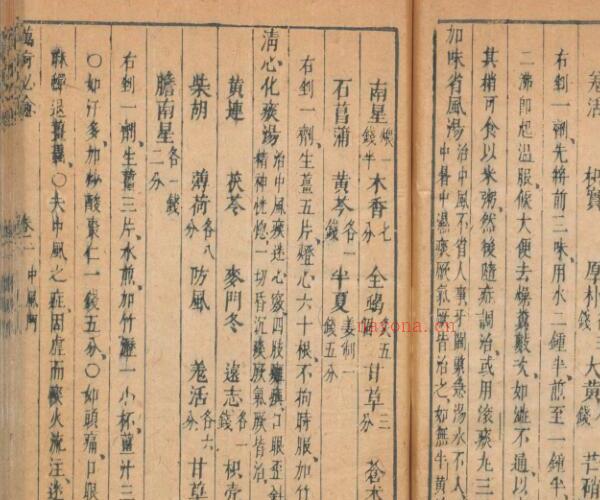 羗活 枳實 厚朴 大黃 芒硝
右剉一劑先將前三味用水二鍾半煎至一鍾
二沸即起温服候大便去燥糞數次如繼不通以
其稍可食以米粥然後隨症調治或用滾痰九三
加味省風湯治中風不省人事牙關緊急湯水不人
中暑中濕痰厥氣厥皆治之如無半黄
南星 錢半 木香 七分 全蝎 五 甘草 三分 蒼术
石菖蒲 黄芩 各一錢 半夏 姜制一錢五分
右剉一劑生薑五片燈心六十根不拘時服加竹
清心化痰湯治中風痰迷心竅四肢 口眼歪斜
精神恍惚一切昏沉痰厥氣厥皆治
黄連 茯苓 麥門冬 遠志 各一錢 枳壳
柴胡 薄荷 各八分 防風 羗活 各六分 甘草
膽南星 各一錢二分
右剉一劑生薑三片水煎加竹瀝一小杯薑汁三
○如汗多加炒酸棗仁一錢五分○如頭痛口眼
○夫中風之症因虚而痰火流注迷
萬病必愈 卷二 中風門
nayona.cn